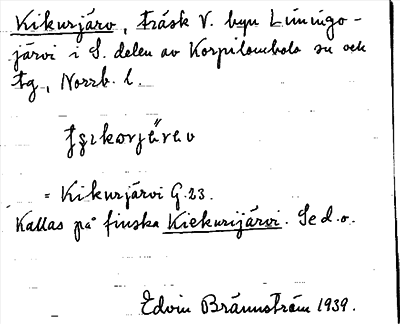 Kikurjärv, träsk V. byn Liningo-
järvi i S. delen av Korpilombolo sn och
tg, Norrb. l.
= Kikurjärvi G.23.
Kallas på finska Kiekurijärvi. Se d.o.
Edvin Brännström 1939.